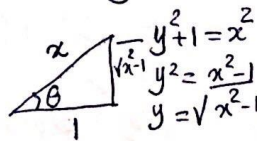 x
θ
1
√x²-1
y²+1=x²
y²=x²-1
y=√x²-1